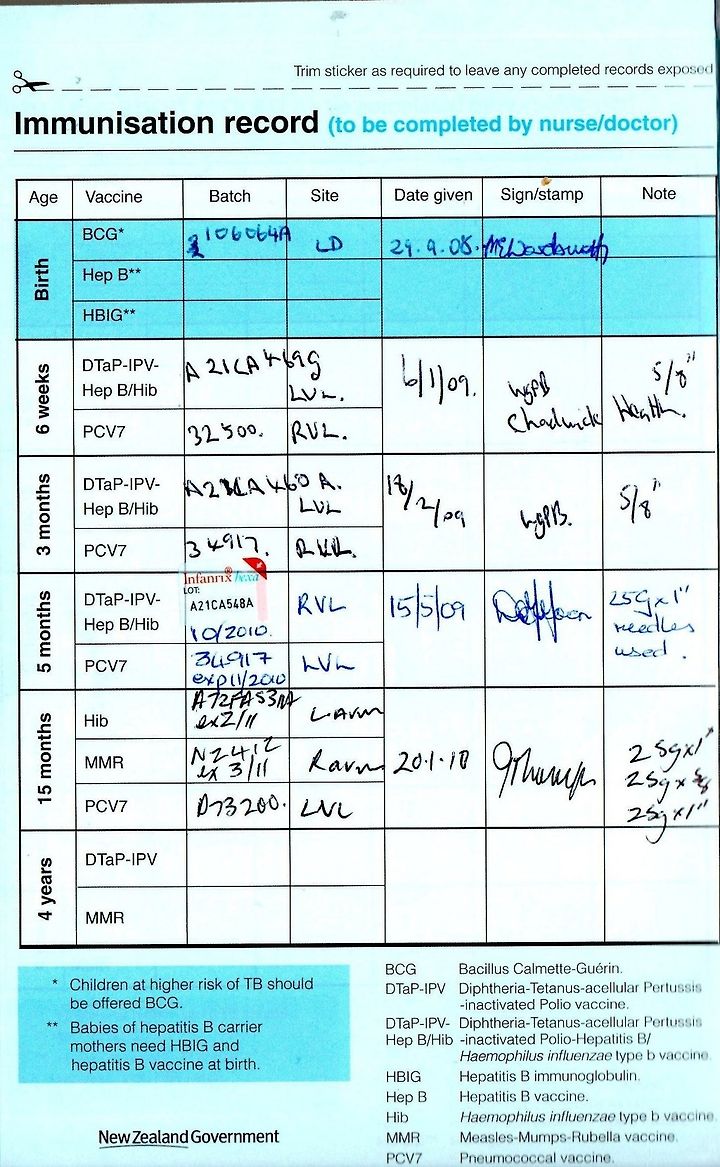 Trim sticker as required to leave any completed records exposed
Immunisation record (to be completed by nurse/doctor)
Age Vaccine Batch Site Date given Sign/stamp Note
Birth
BCG* 106064A LD 29.9.08.
Hep B**
HBIG**
6 weeks
DTaP-IPV-
Hep B/Hib A21CA469G LVL. 6/1/09. Chadwick 5/8" Health.
PCV7 32500. RVL.
3 months
DTaP-IPV-
Hep B/Hib LVL 18/2/09 5/8"
PCV7 34917. RVL.
5 months
Infanrix® hexa
LOT:
A21CA548A
DTaP-IPV-
Hep B/Hib 10/2010. RVL 15/5/09 25G x 1"
needles
used.
PCV7 34917 LVL
exp 11/2010
15 months
Hib ex 2/11 L arm
MMR N2412 R arm 20.1.10 25g x 1"
ex 3/11 25g x 5/8
PCV7 LVL 25g x 1"
4 years
DTaP-IPV
MMR
* Children at higher risk of TB should
be offered BCG.
** Babies of hepatitis B carrier
mothers need HBIG and
hepatitis B vaccine at birth.
New Zealand Government
BCG Bacillus Calmette-Guérin.
DTaP-IPV Diphtheria-Tetanus-acellular Pertussis
-inactivated Polio vaccine.
DTaP-IPV- Diphtheria-Tetanus-acellular Pertussis
Hep B/Hib -inactivated Polio-Hepatitis B/
Haemophilus influenzae type b vaccine.
HBIG Hepatitis B immunoglobulin.
Hep B Hepatitis B vaccine.
Hib Haemophilus influenzae type b vaccine.
MMR Measles-Mumps-Rubella vaccine.
PCV7 Pneumococcal vaccine.